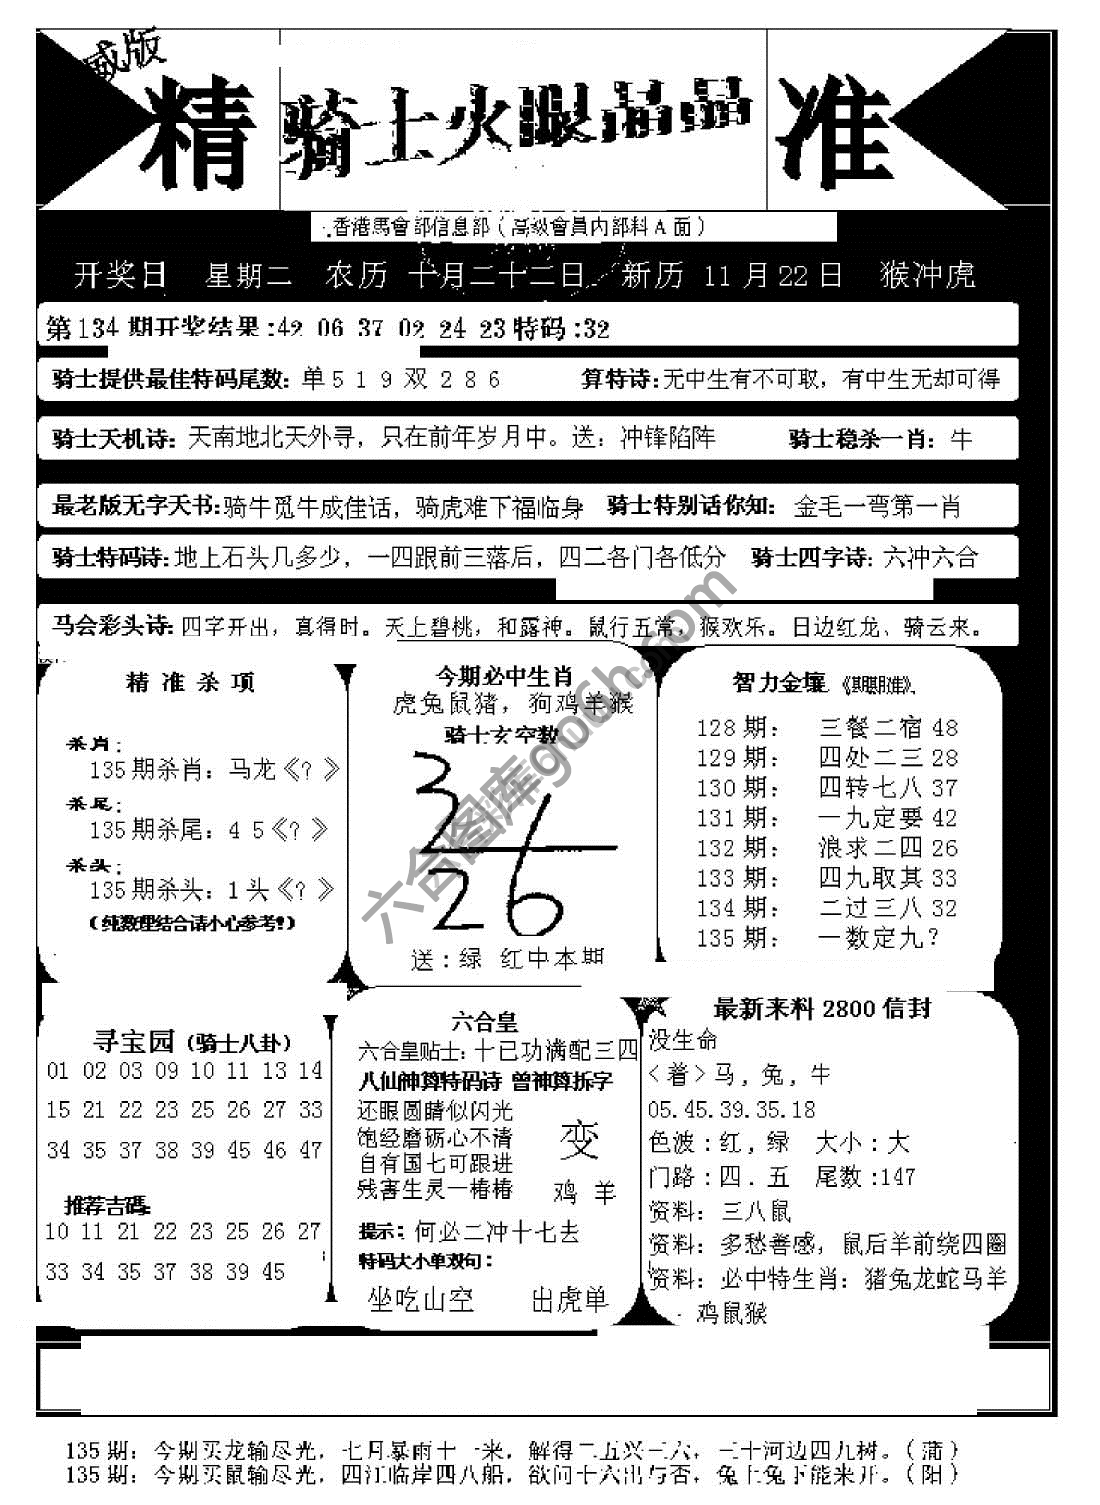 威版
精 骑士火眼晶晶 准
香港馬會部信息部(高級會員内部料A面)
开奖日 星期二 农历 十月二十二日 新历 11月22日 猴冲虎
第134期开奖结果:42 06 37 02 24 23特码:32
骑士提供最佳特码尾数: 单519双286 算特诗:无中生有不可取，有中生无却可得
骑士天机诗: 天南地北天外寻，只在前年岁月中。送：冲锋陷阵 骑士稳杀一肖: 牛
最老版无字天书:骑牛觅牛成佳话，骑虎难下福临身 骑士特别话你知: 金毛一弯第一肖
骑士特码诗:地上石头几多少，一四跟前三落后，四二各门各低分 骑士四字诗:六冲六合
马会彩头诗:四字开出，真得时。天上碧桃，和露神。鼠行五常，猴欢乐。日边红龙、骑云来。
精准杀项
杀肖:
135期杀肖: 马龙《?》
杀尾:
135期杀尾: 4 5《?》
杀头:
135期杀头: 1头《?》
(纯数理结合请小心参考!)
今期必中生肖
虎兔鼠猪，狗鸡羊猴
骑士玄空数
3
26
送:绿 红中本期
智力金壤《期期推》
128期: 三餐二宿48
129期: 四处二三28
130期: 四转七八37
131期: 一九定要42
132期: 浪求二四26
133期: 四九取其33
134期: 二过三八32
135期: 一数定九?
寻宝园(骑士八卦)
01 02 03 09 10 11 13 14
15 21 22 23 25 26 27 33
34 35 37 38 39 45 46 47
推荐吉碼:
10 11 21 22 23 25 26 27
33 34 35 37 38 39 45
六合皇
六合皇贴士:十已功满配三四
八仙神算特码诗 曾神算拆字
还眼圆睛似闪光
饱经磨砺心不清
自有国七可跟进
残害生灵一椿椿
变
鸡 羊
提示: 何必二冲十七去
特码大小单双句:
坐吃山空 出虎单
最新来料2800信封
没生命
<着>马,兔,牛
05.45.39.35.18
色波:红,绿 大小:大
门路:四.五 尾数:147
资料: 三八鼠
资料: 多愁善感，鼠后羊前绕四圈
资料: 必中特生肖: 猪兔龙蛇马羊
鸡鼠猴
135期: 今期买龙输尽光，七月暴雨十一来，解得二五兴三六，三十河边四九树。(蒲)
135期: 今期买鼠输尽光，四江临岸四八船，欲问十六出与否，兔上兔下能来开。(阳)
六合图库go6h.com